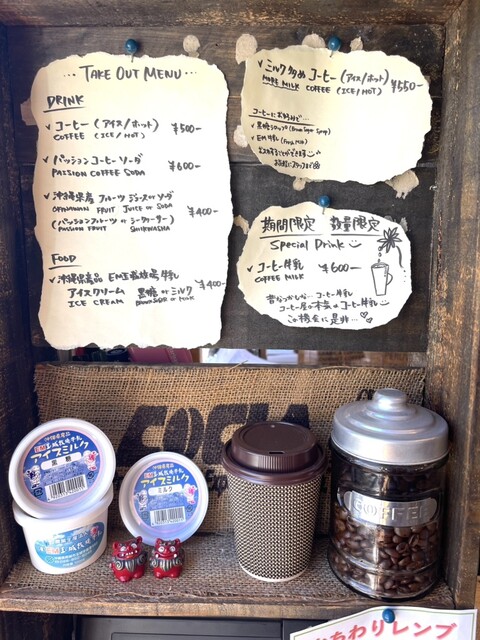 … TAKE OUT MENU …
DRINK
✓ コーヒー (アイス/ホット) ¥500-
COFFEE (ICE/HOT)
✓ パッションコーヒーソーダ ¥600-
PASSION COFFEE SODA
✓ 沖縄県産 フルーツ ジュース or ソーダ
OKINAWAN FRUIT JUICE or SODA
(パッションフルーツ or シークヮーサー) ¥400-
PASSION FRUIT SHIIKWASHA
FOOD
✓ 沖縄県産品 EM玉城牧場牛乳
アイスクリーム 黒糖 or ミルク ¥400-
ICE CREAM BROWN SUGAR or MILK
✓ ミルク多め コーヒー (アイス/ホット) ¥550-
MORE MILK COFFEE (ICE/HOT)
コーヒーにお好みで…
✓ 黒糖シロップ (Brown Sugar Syrup)
✓ EM牛乳 (Fresh Milk)
期間限定 数量限定
Special Drink
✓ コーヒー牛乳 ¥600-
COFFEE MILK
昔なつかしな… コーヒー牛乳
コーヒー屋の本気のコーヒー牛乳
この機会に是非…♡
沖縄県産品
EM玉城牧場牛乳
アイスミルク
黒糖
EM玉城牧場牛乳
アイスミルク
ミルク
COFFEE
ちわりレンプ